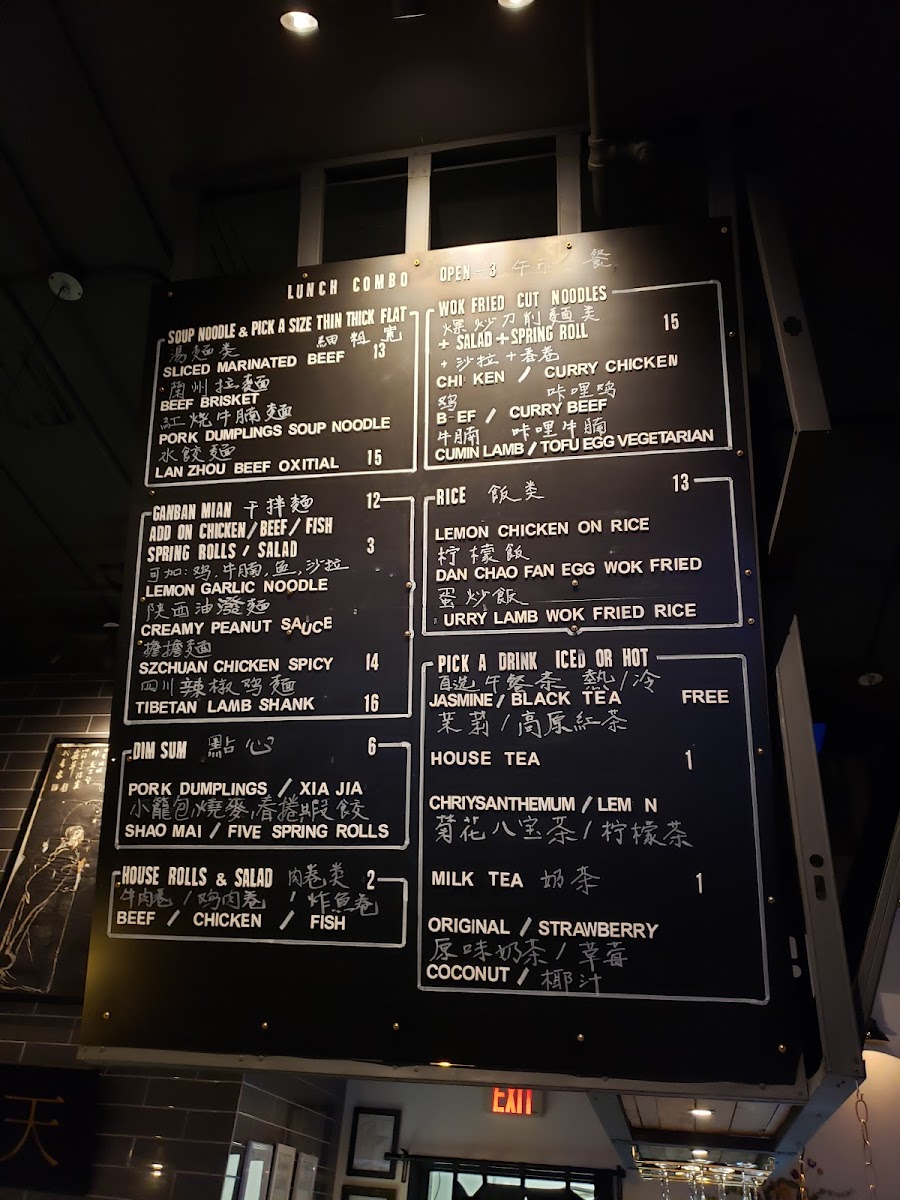 LUNCH COMBO OPEN - 3 午市 餐
SOUP NOODLE & PICK A SIZE THIN THICK FLAT
湯麵类 細 粗 寬
SLICED MARINATED BEEF 13
蘭州拉麵
BEEF BRISKET
紅燒牛腩麵
PORK DUMPLINGS SOUP NOODLE
水餃麵
LAN ZHOU BEEF OXITIAL 15
GANBAN MIAN 干拌麵 12
ADD ON CHICKEN/BEEF/FISH
SPRING ROLLS / SALAD 3
可加:鸡,牛腩,魚,沙拉
LEMON GARLIC NOODLE
陝西油潑麵
CREAMY PEANUT SAUCE
擔擔麵
SZCHUAN CHICKEN SPICY 14
四川辣椒鸡麵
TIBETAN LAMB SHANK 16
DIM SUM 點心 6
PORK DUMPLINGS / XIA JIA
小籠包,燒麥,春捲,蝦餃
SHAO MAI / FIVE SPRING ROLLS
HOUSE ROLLS & SALAD 肉卷类 2
牛肉卷 / 鸡肉卷 / 炸魚卷
BEEF / CHICKEN / FISH
WOK FRIED CUT NOODLES
爆炒刀削麵类 15
+ SALAD + SPRING ROLL
+ 沙拉 + 春卷
CHI KEN / CURRY CHICKEN
鸡 咖哩鸡
B EF / CURRY BEEF
牛腩 咖哩牛腩
CUMIN LAMB / TOFU EGG VEGETARIAN
RICE 飯类 13
LEMON CHICKEN ON RICE
柠檬飯
DAN CHAO FAN EGG WOK FRIED
蛋炒飯
URRY LAMB WOK FRIED RICE
PICK A DRINK ICED OR HOT
自选午餐茶 熱/冷
JASMINE / BLACK TEA FREE
茉莉/高原紅茶
HOUSE TEA 1
CHRIYSANTHEMUM / LEM N
菊花八宝茶/柠檬茶
MILK TEA 奶茶 1
ORIGINAL / STRAWBERRY
原味奶茶/草莓
COCONUT / 椰汁
EXIT
天